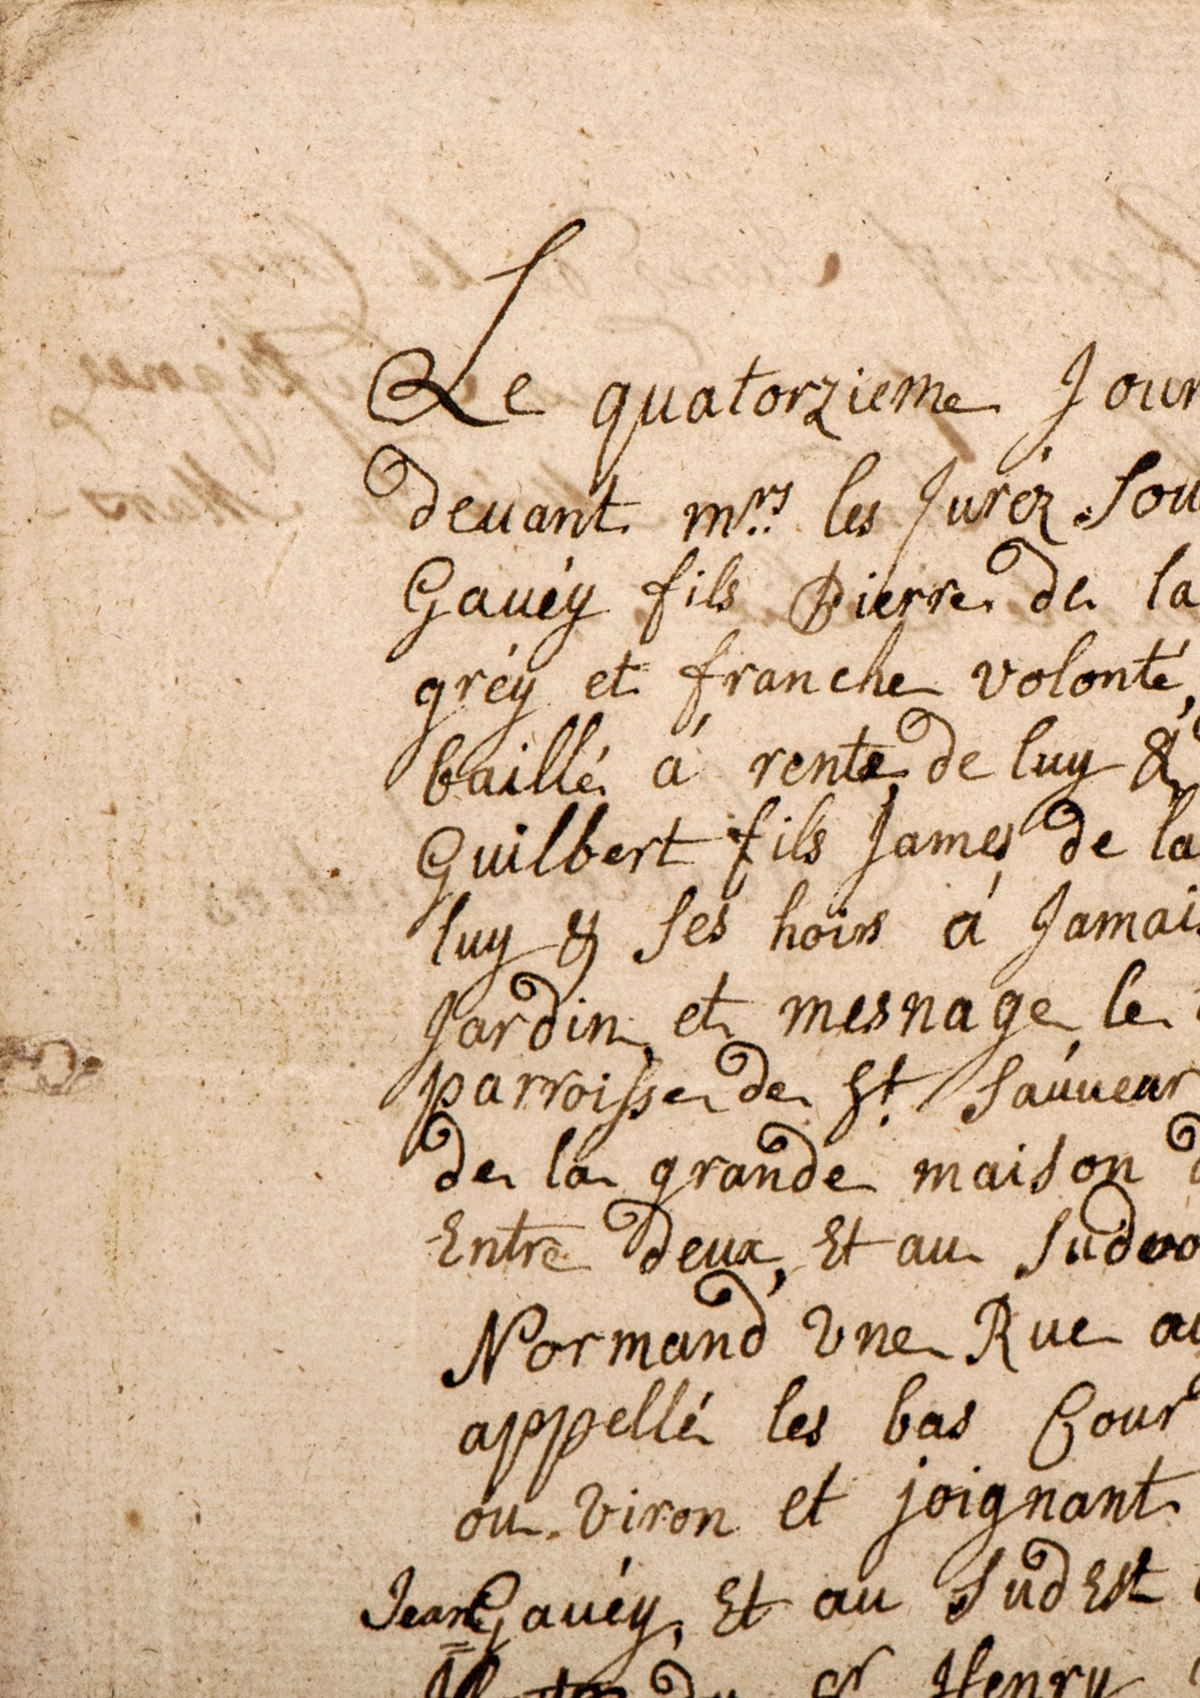 Le quatorzieme Jour
devant mrs. les Juréz Sou
Gavéy fils Pierre de la
gréy et franche volonté,
baillé á rente, de luy &
Guilbert fils James, de la
luy & ses hoirs á Jamais
Jardin, et mesnage, le
parroisse de St. Sauveur
de la grande maison d
Entre deux, Et au Sudvo
Normand Vne Rue au
appellé les bas Cour
ou viron et joignant
Jean Gavéy, Et au Sud Est
du Sr Henry